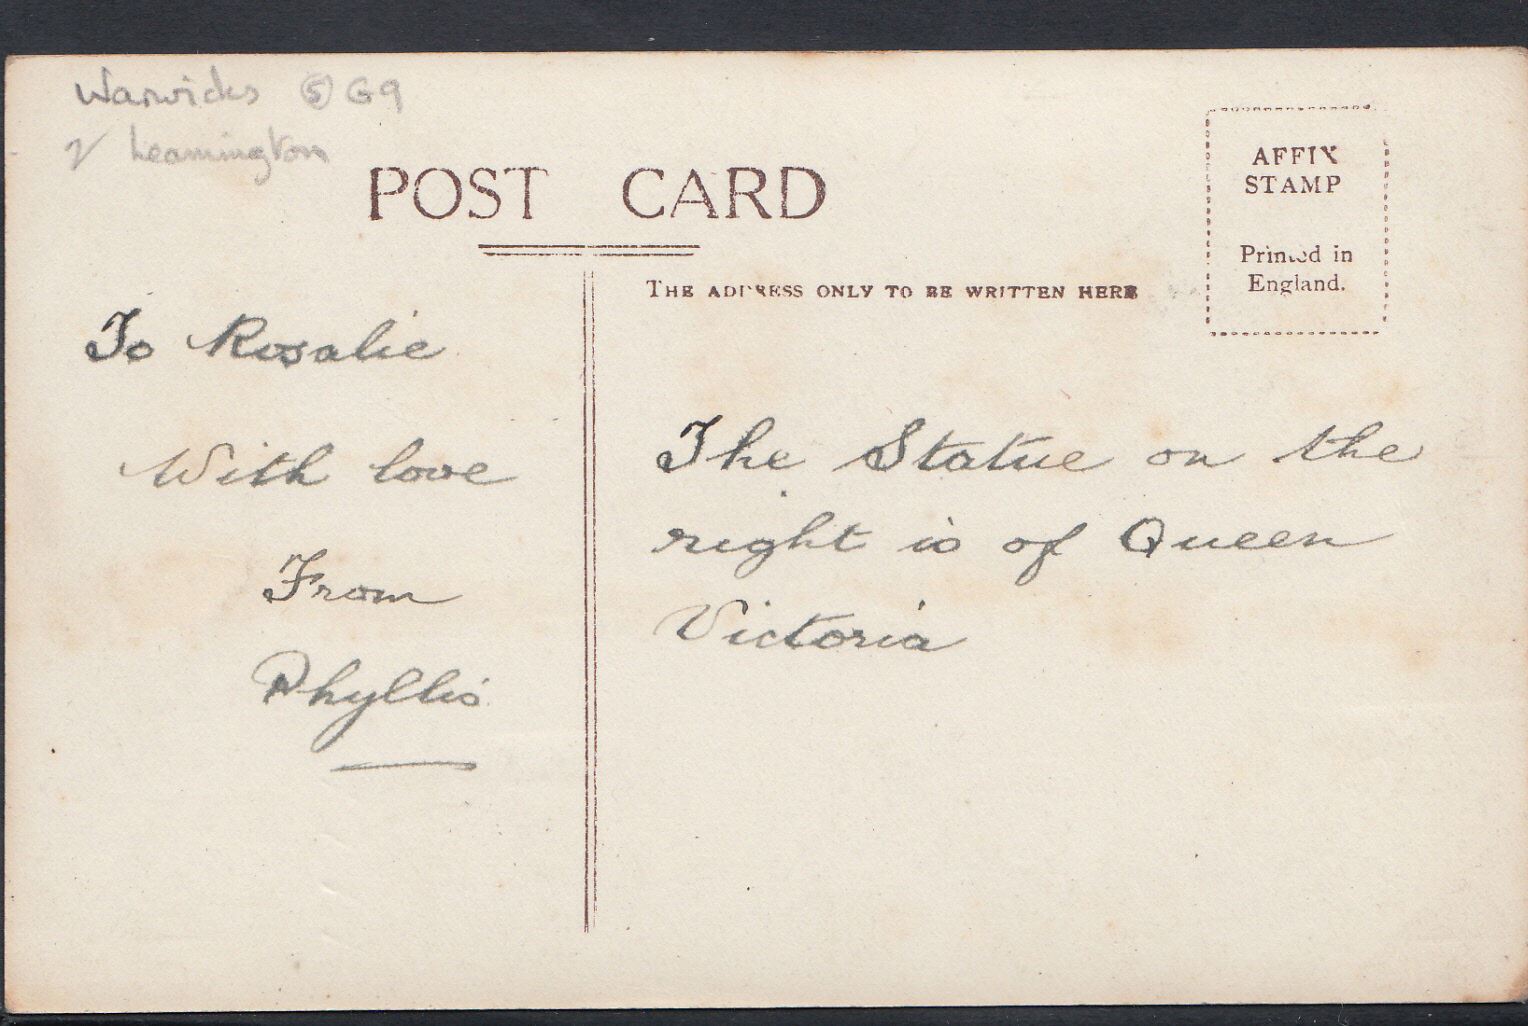 Warwicks ⑤ G9
Leamington
POST CARD
AFFIX
STAMP
Printed in
England.
THE ADDRESS ONLY TO BE WRITTEN HERE
To Rosalie
With love
From
Phyllis
The Statue on the
right is of Queen
Victoria